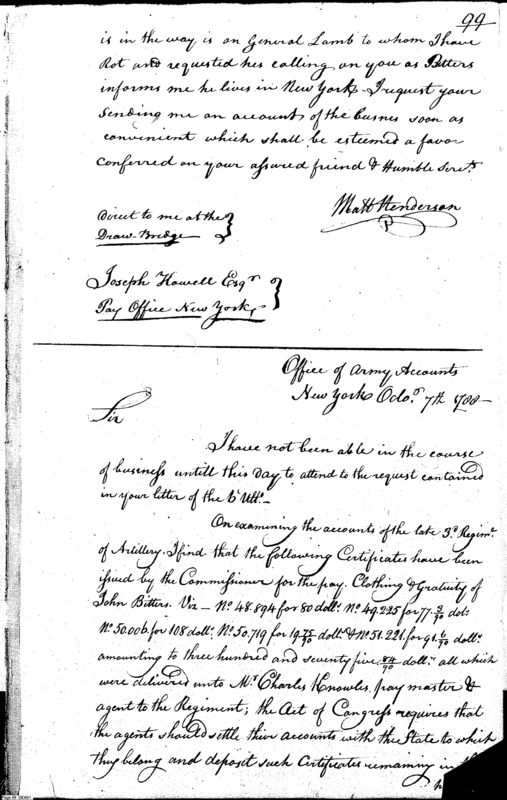 99
is in the way is on General Lamb to whom I have
Rot and requested hes calling on you as Bitters
informs me he lives in New York - I request your
Sending me an account of the busnes soon as
convenient which shall be esteemed a favor
Conferred on your assured friend & Humble Servt.
Matt Henderson
Direct to me at the
Draw-Bridge
Joseph Howell Esqr
Pay Office New York
Office of Army Accounts
New York Octor. 7th 1788 -
Sir
I have not been able in the course
of business untill this day to attend to the request contained
in your letter of the 6 Ulto. -
On examining the accounts of the late 3d. Regimt.
of Artillery, I find that the following Certificates have been
issued by the Commissioner for the pay, Clothing & Gratuity of
John Bitters. Viz - No. 48.894 for 80 dolls. No. 49.225 for 77. 3/90 dols
No. 50.006. for 108 dolls. No. 50.719 for 19 75/90 dolls. & No. 51.221. for 91. 6/90 dolls.
amounting to three hundred and seventy five 84/90 dolls. all which
were delivered unto Mr. Charles Knowles, pay master &
agent to the Regiment; the Act of Congress requires that
the agents should settle their accounts with the State to which
they belong and deposit such Certificates remaining in